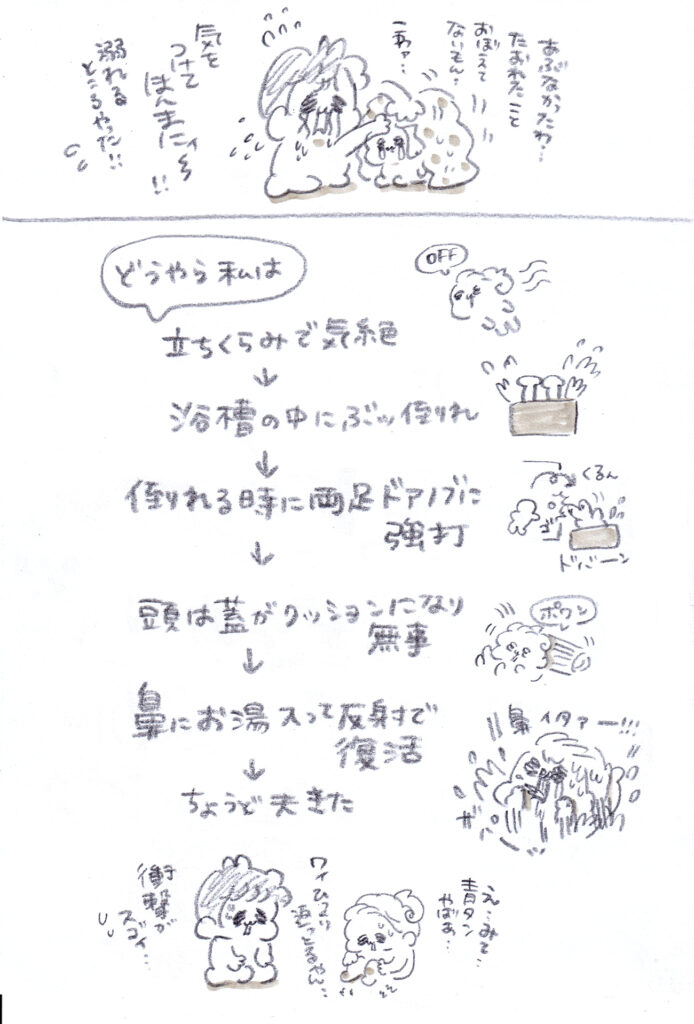 あぶなかったわ…
たおれたこと
おぼえて
ないもん…
こわァ…
気を
つけて
ほんまにィ
!!
溺れる
ところやった!!
どうやら私は
OFF
立ちくらみで気絶
↓
浴槽の中にぶッ倒れ
↓
倒れる時に両足ドアノブに
強打
くるん
ゴッ
ドバーン
↓
頭は蓋がクッションになり
無事
ポワン
↓
鼻にお湯入って反射で
復活
鼻イタァー!!!
↓
ちょうど夫きた
え…みて…
青タン
やばぁ…
衝撃が
スゴイ…